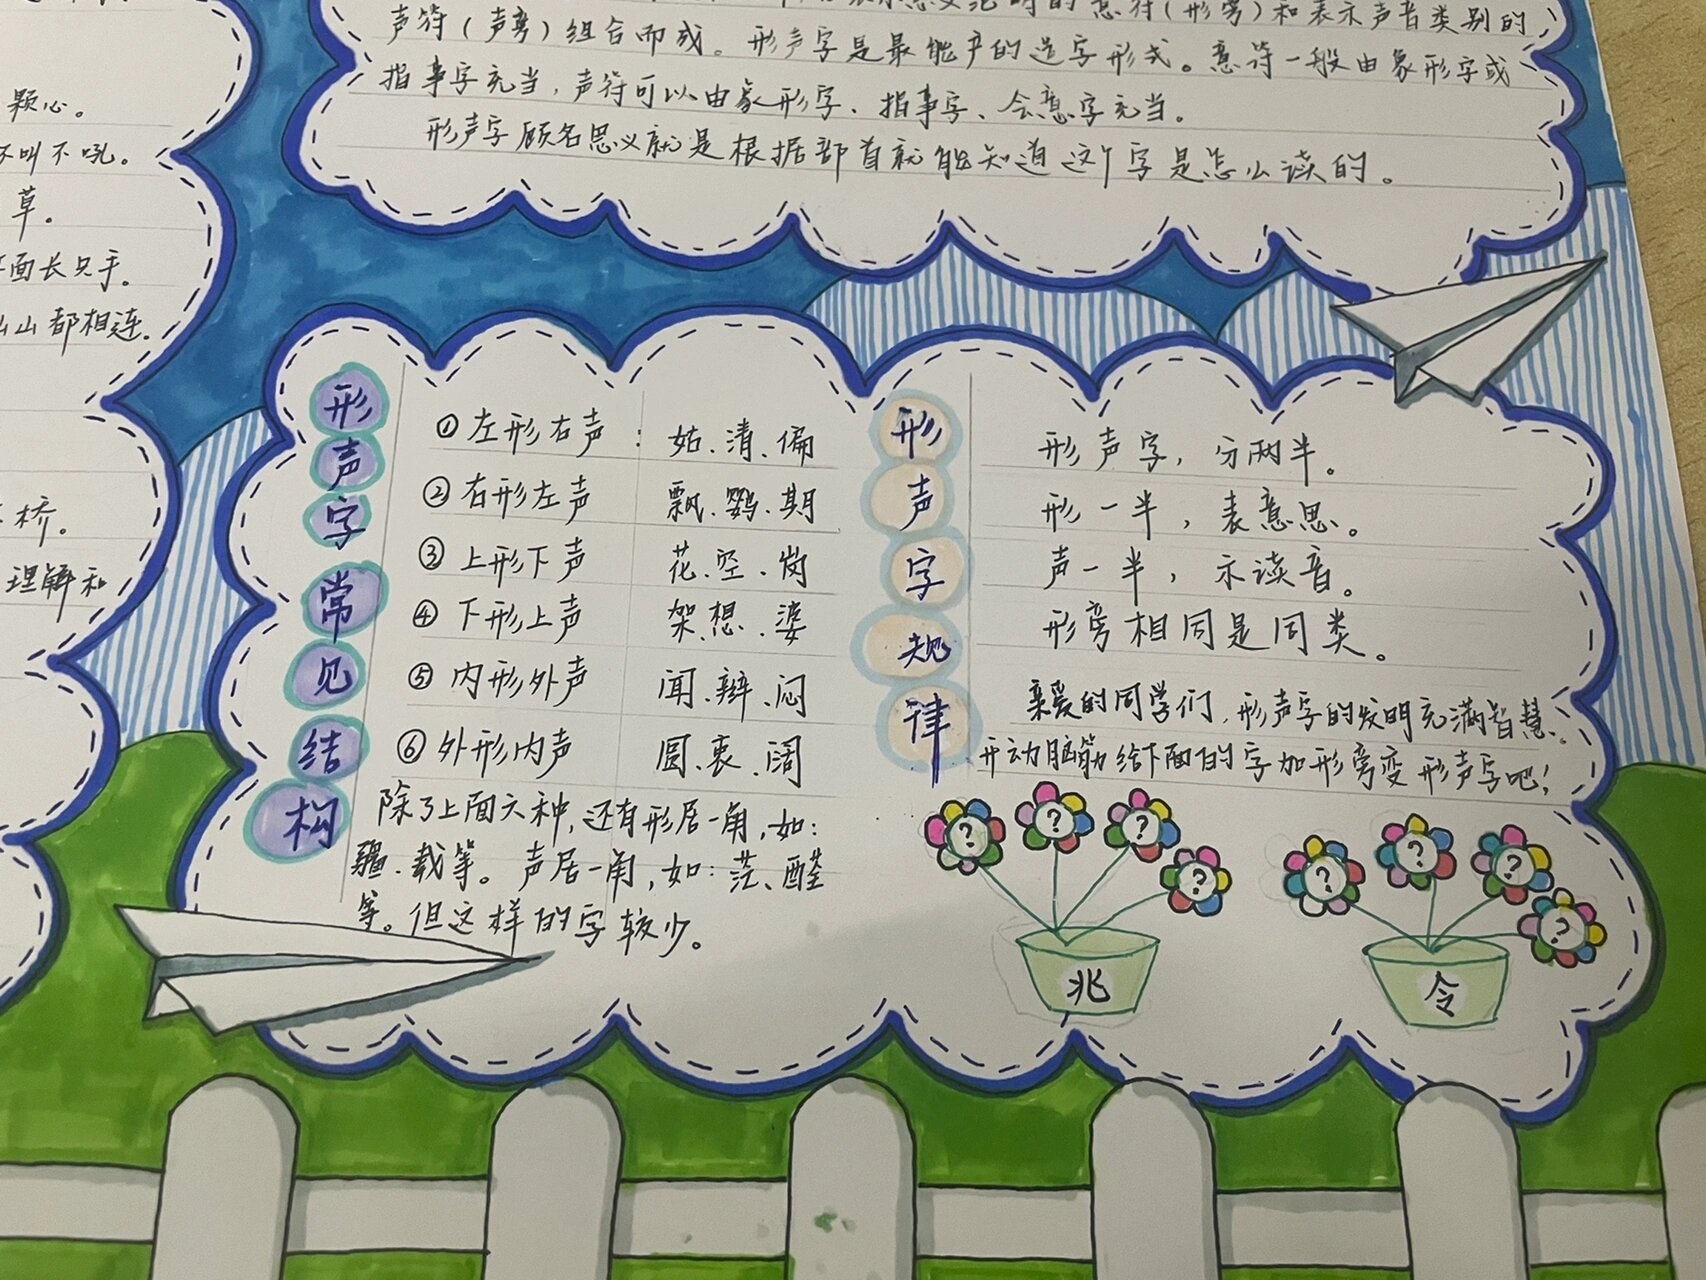 颗心。
不叫不吼。
草。
面长只手。
山山都相连.
桥。
理解和
声符(声旁)组合而成。形声字是最能产的造字形式。意符一般由象形字或
指事字充当,声符可以由象形字、指事字、会意字充当。
形声字顾名思义就是根据部首就能知道这个字是怎么读的。
形声字常见结构
①左形右声:姑、清、偏
②右形左声 飘、鹦、期
③上形下声 花、空、岗
④下形上声 架、想、婆
⑤内形外声 闻、辩、闷
⑥外形内声 圆、衷、阔
除了上面六种,还有形居一角,如:
疆、载等。声居一角,如:茫、醛
等。但这样的字较少。
形声字规律
形声字,分两半。
形一半,表意思。
声一半,示读音。
形旁相同是同类。
亲爱的同学们,形声字的发明充满智慧。
开动脑筋给下面的字加形旁变形声字吧!
? ? ? ?
兆
? ? ? ?
令